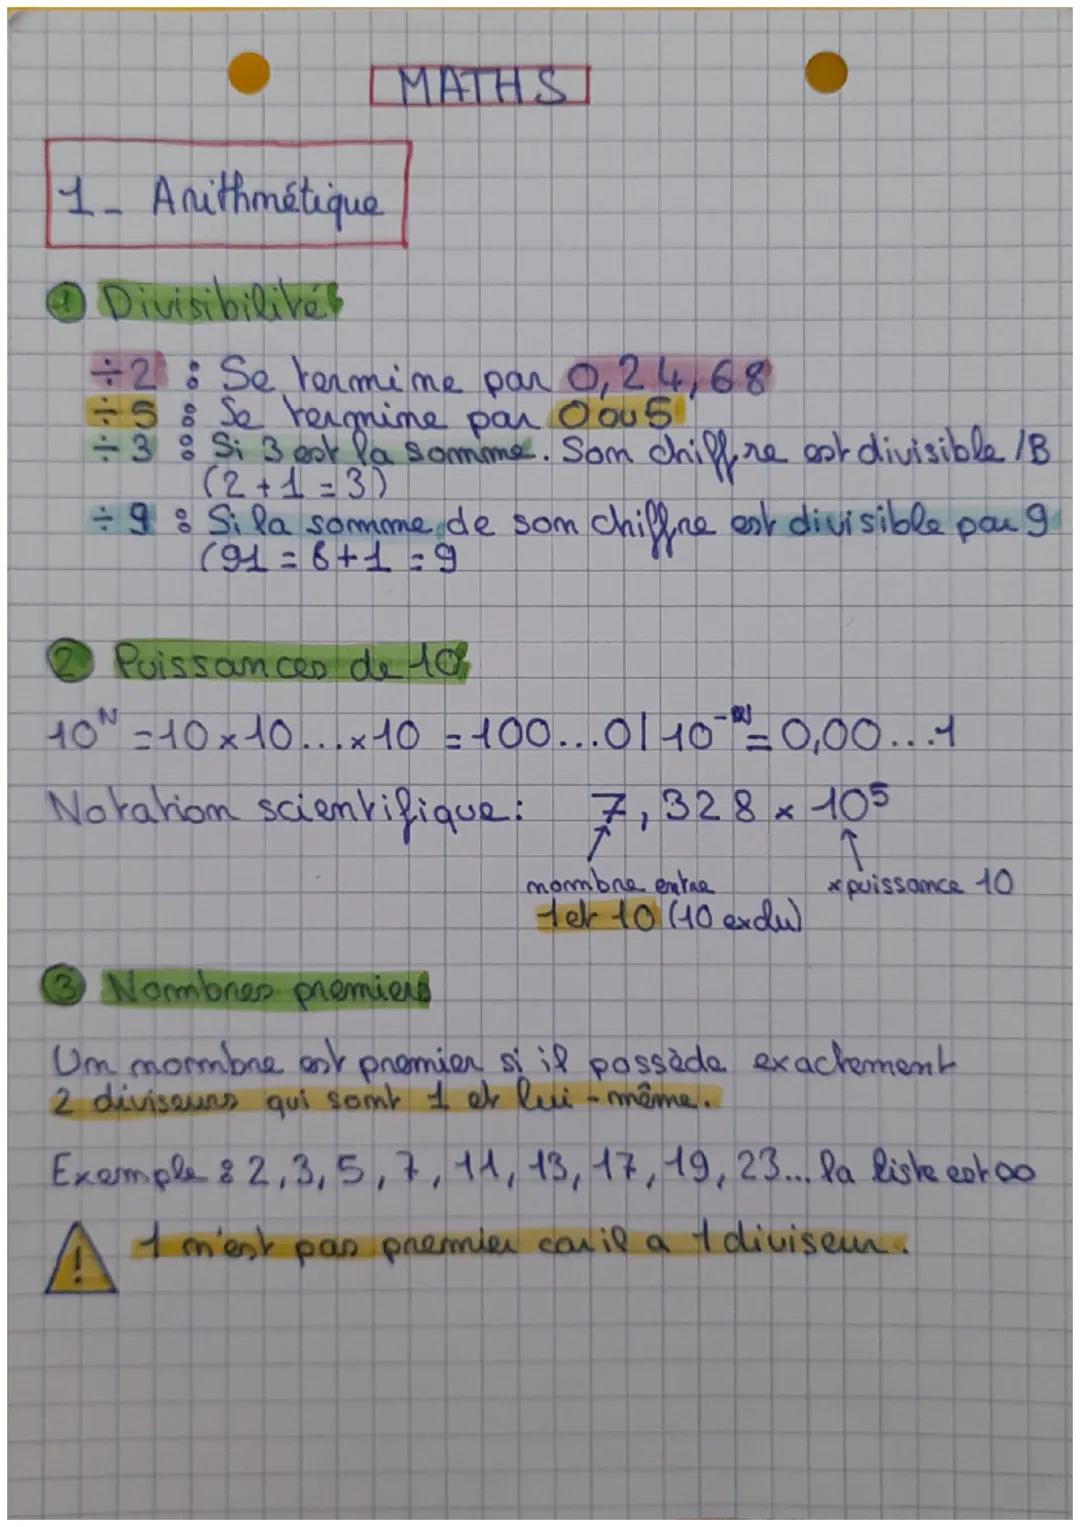 MATHS
1_ Arithmétique
1 Divisibilités
÷2 : Se termine par 0, 2 4, 6 8
÷5 : Se termine par 0 ou 5
÷3 : Si 3 est la somme. Som chiffre est divisible /B
(2+1=3)
÷9 : Si la somme de som chiffre est divisible par 9
(91 = 8+1 = 9
2 Puissances de 10
10ᴺ = 10 x 10 ... x 10 = 100...0 | 10⁻ᴺ = 0,00...1
Notation scientifique : 7,328 x 10⁵
nombre entre x puissance 10
1 et 10 (10 exclu)
3 Nombres premiers
Un nombre est premier si il possède exactement
2 diviseurs qui sont 1 et lui-même.
Exemple : 2, 3, 5, 7, 11, 13, 17, 19, 23... la liste est ∞
! 1 n'est pas premier car il a 1 diviseur.